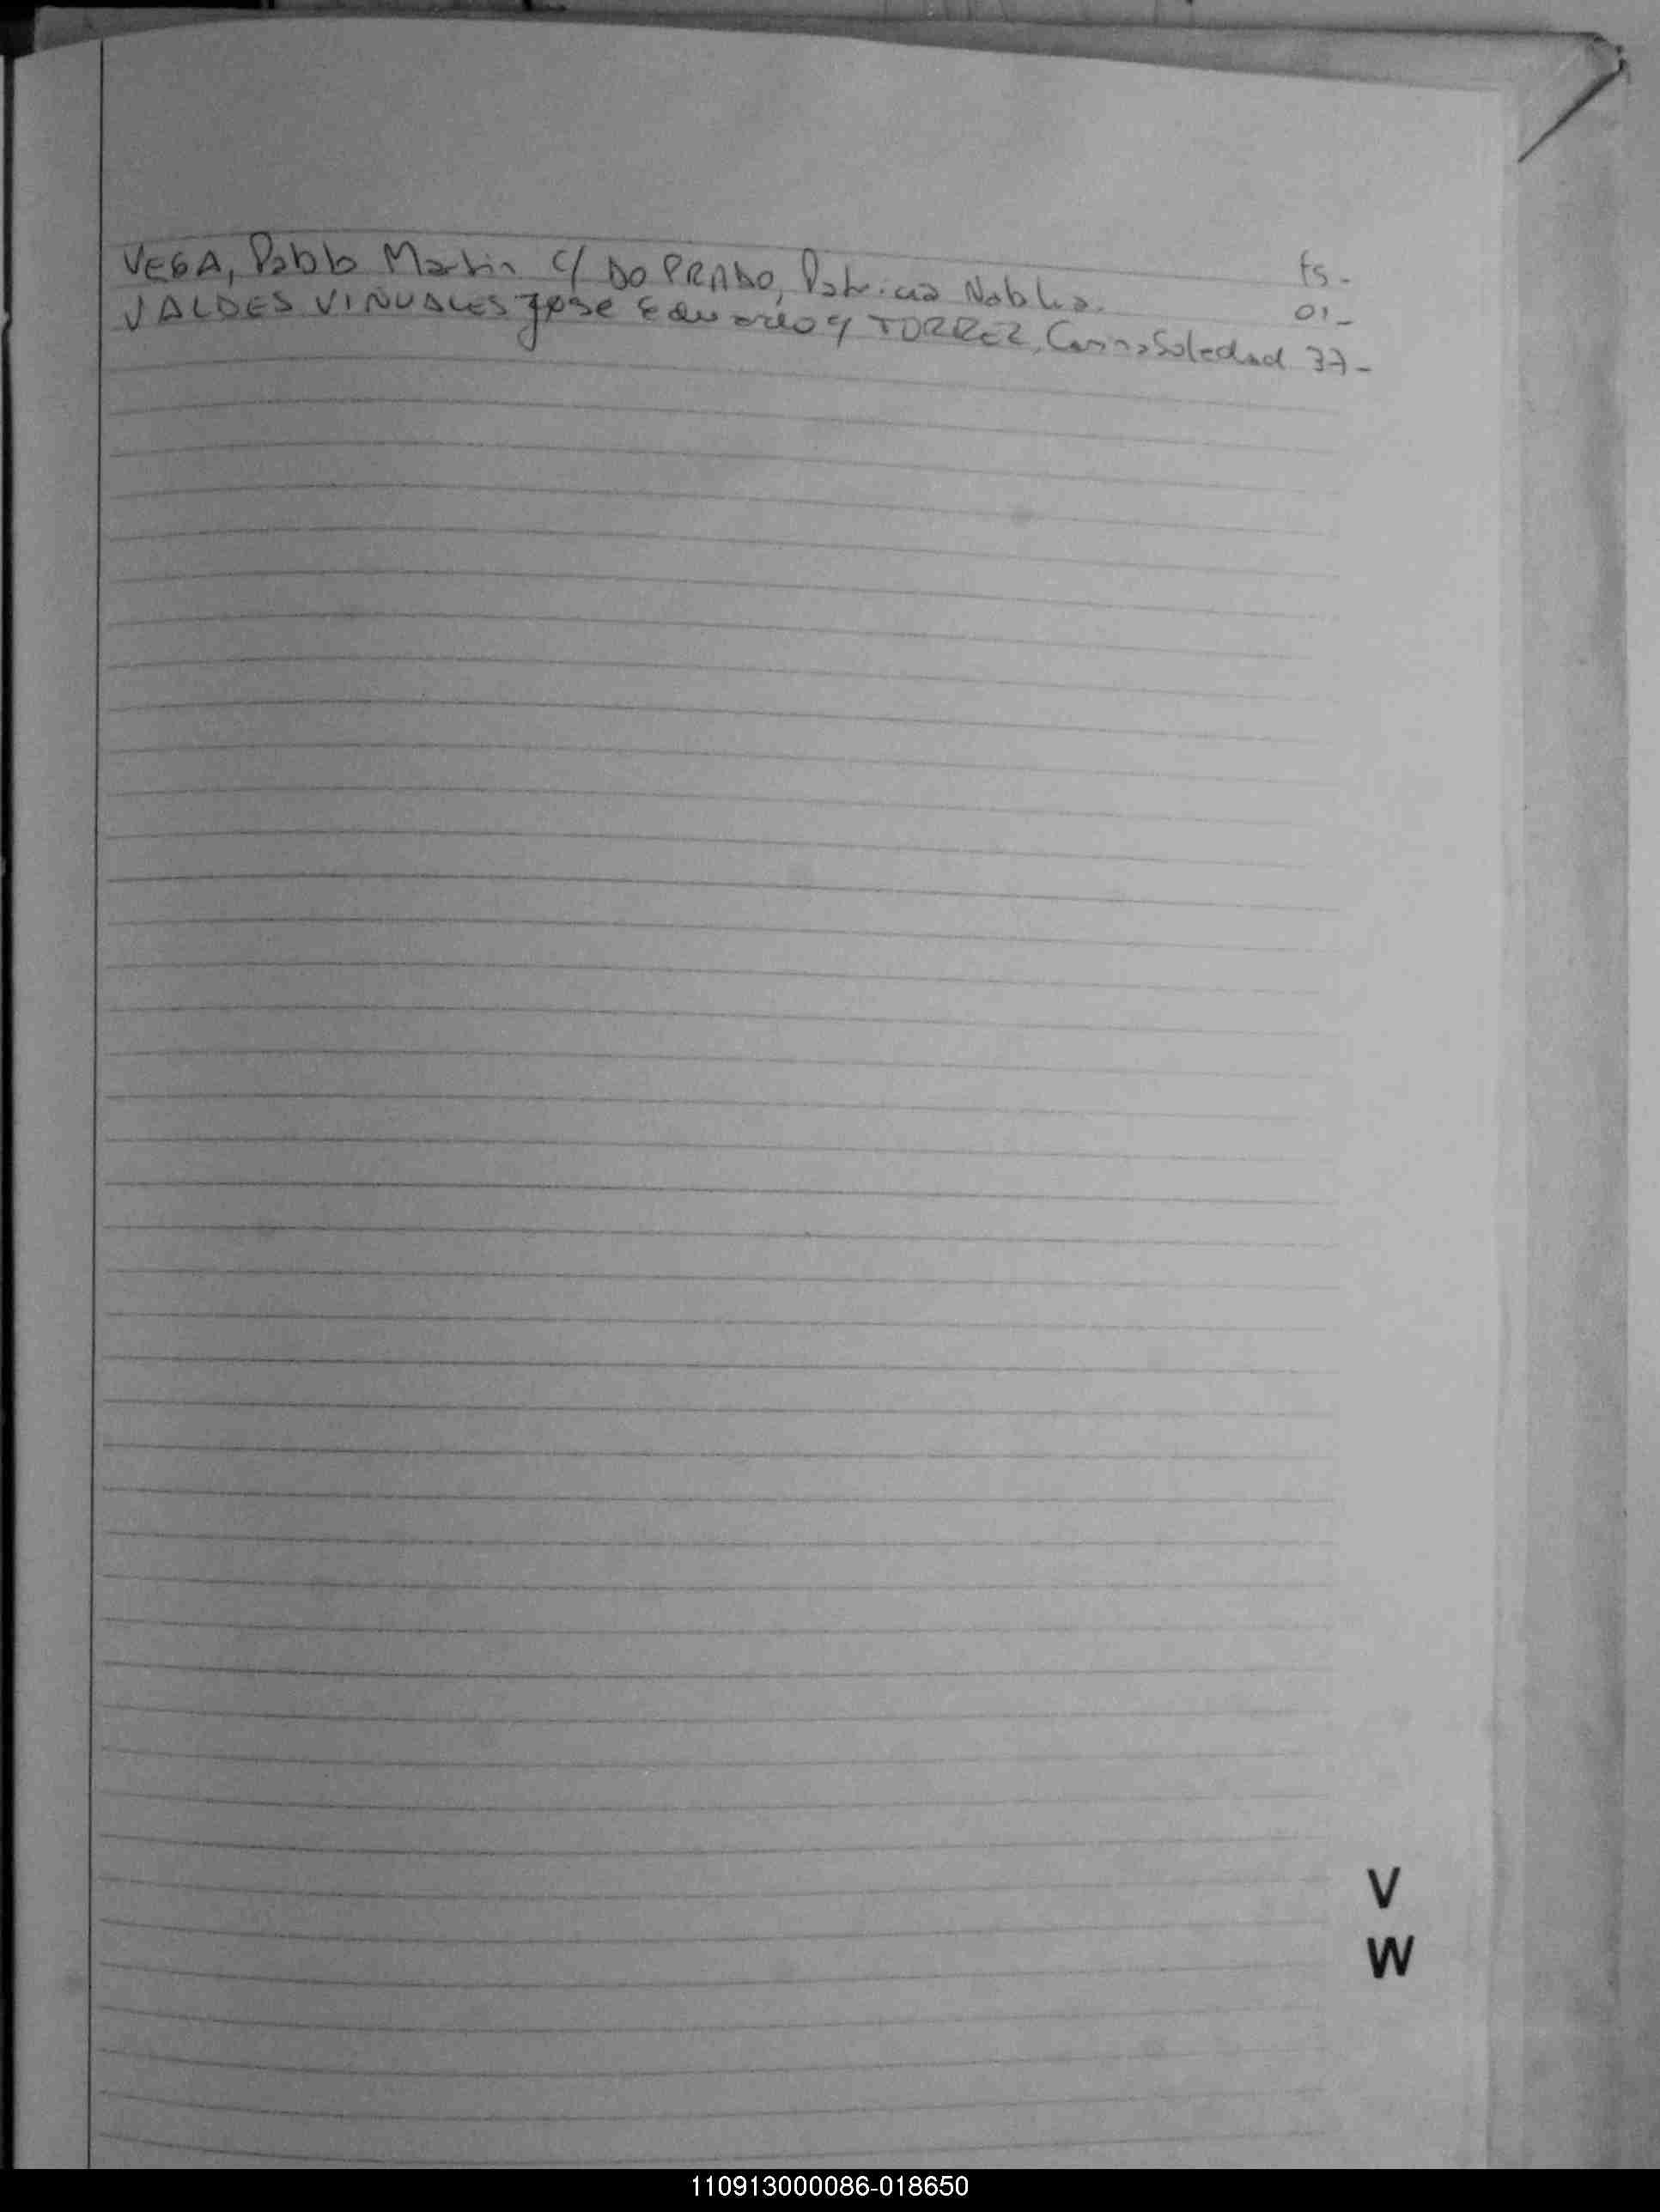 fs-
VEGA, Pablo Martin C/ DO PRADO, Patricia Noblia. 01-
VALDES VIÑUALES Jose Eduardo y TORREZ, Carina Soledad 37-
V
W
110913000086-018650